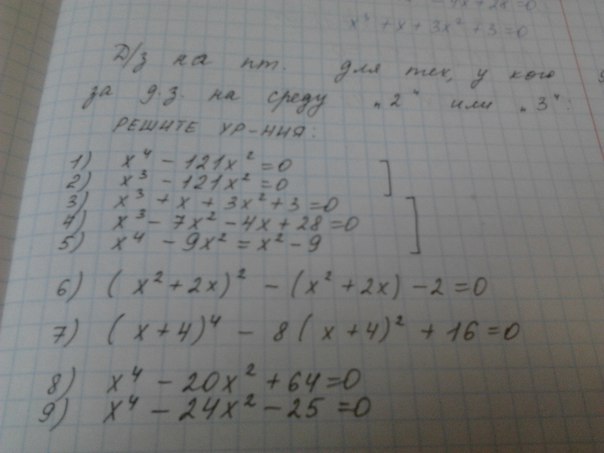 - 4x + 28 = 0
x³ + x + 3x² + 3 = 0
Д/з на пт. для тех, у кого
за д.з. на среду „2" или „3":
РЕШИТЕ УР-НИЯ:
1) x⁴ - 121x² = 0
2) x³ - 121x² = 0
3) x³ + x + 3x² + 3 = 0
4) x³ - 7x² - 4x + 28 = 0
5) x⁴ - 9x² = x² - 9
6) (x² + 2x)² - (x² + 2x) - 2 = 0
7) (x + 4)⁴ - 8(x + 4)² + 16 = 0
8) x⁴ - 20x² + 64 = 0
9) x⁴ - 24x² - 25 = 0